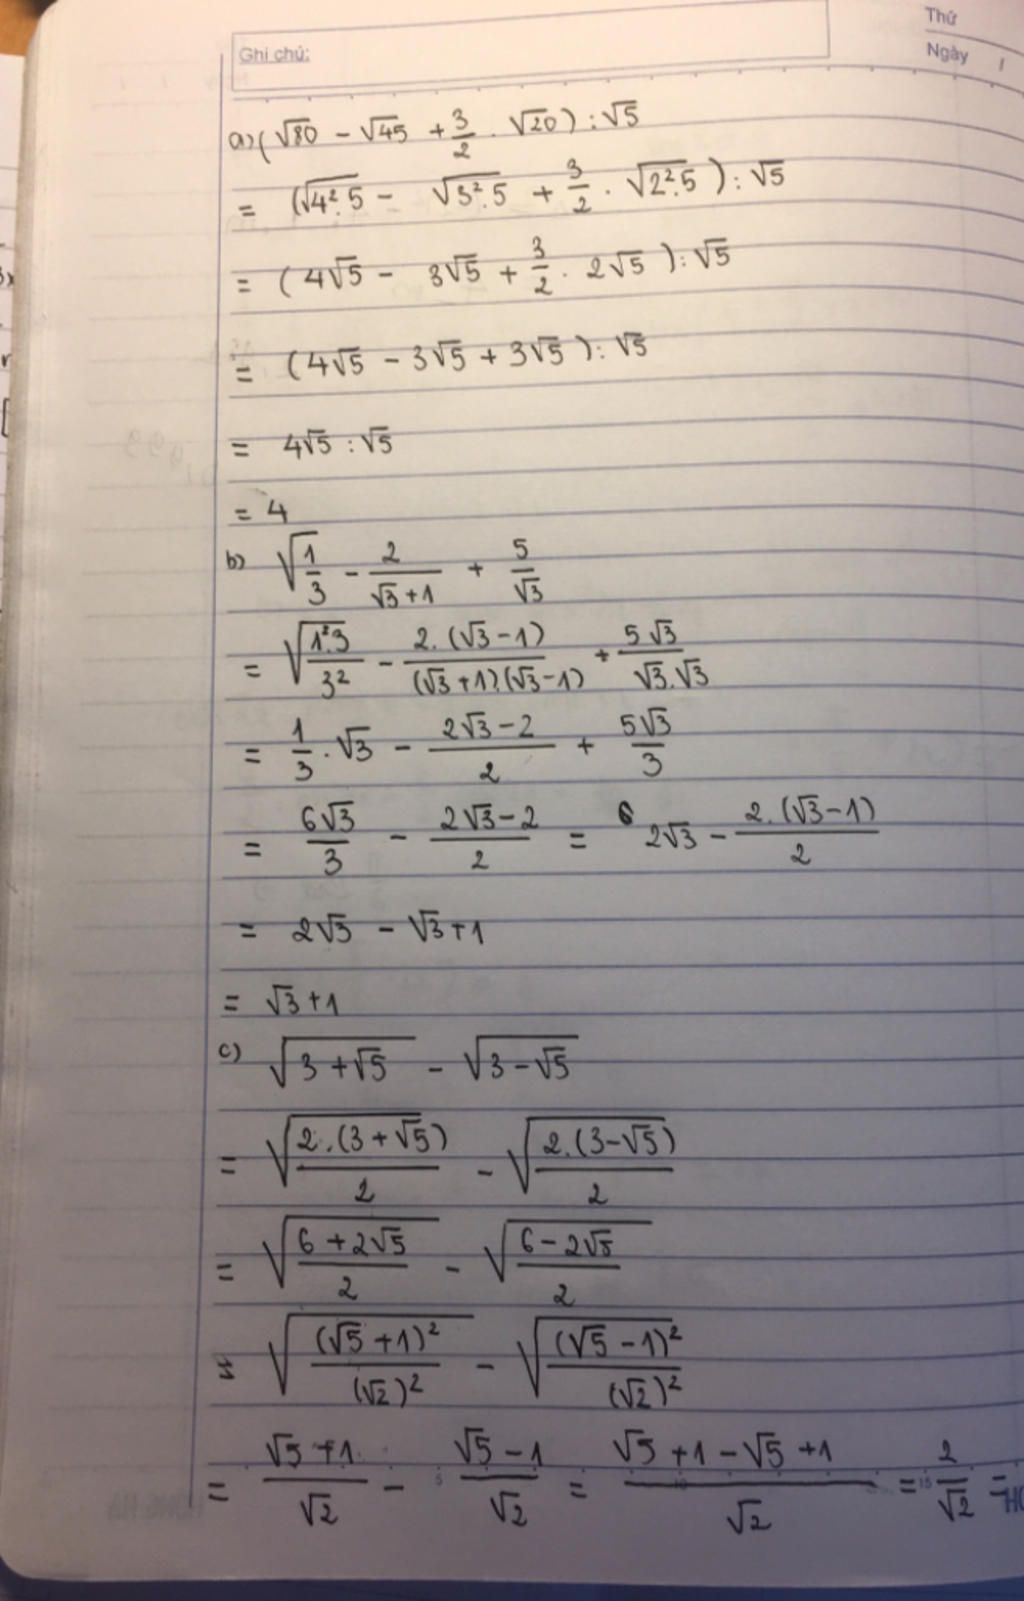 Thứ
Ghi chú:
Ngày /
a) (√80 - √45 + 3/2 . √20) : √5
= (√(4².5) - √(3².5) + 3/2 . √(2².5)) : √5
= (4√5 - 3√5 + 3/2 . 2√5) : √5
= (4√5 - 3√5 + 3√5) : √5
= 4√5 : √5
= 4
b) √(1/3) - 2/(√3+1) + 5/√3
= √(1².3/3²) - 2.(√3-1)/((√3+1).(√3-1)) + 5√3/(√3.√3)
= 1/3 . √3 - (2√3-2)/2 + 5√3/3
= 6√3/3 - (2√3-2)/2 = 2√3 - 2.(√3-1)/2
= 2√3 - √3+1
= √3+1
c) √(3+√5) - √(3-√5)
= √(2.(3+√5)/2) - √(2.(3-√5)/2)
= √((6+2√5)/2) - √((6-2√5)/2)
= √((√5+1)²/(√2)²) - √((√5-1)²/(√2)²)
= (√5+1)/√2 - (√5-1)/√2 = (√5+1-√5+1)/√2 = 2/√2 =